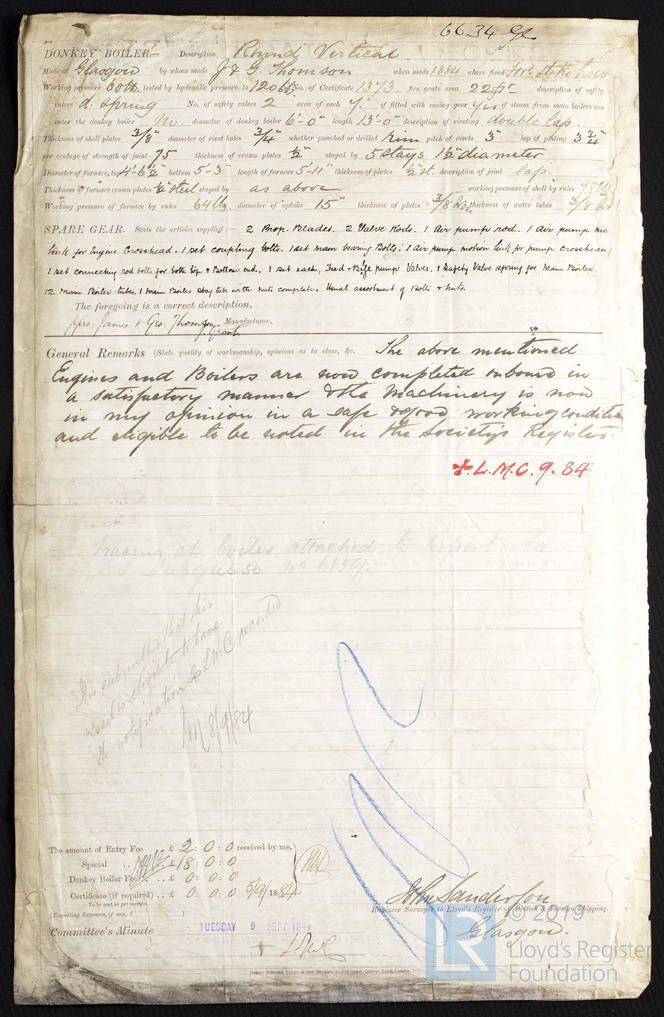 6634 Gls
DONKEY BOILER— Description Round Vertical
Made at Glasgow by whom made J & G. Thomson when made 1884 where fixed For stokehole
Working pressure 60 lb tested by hydraulic pressure to 120 lb No. of Certificate 1373 fire grate area 22 description of safety
valves d. spring No. of safety valves 2 area of each 7" if fitted with easing gear yes if steam from main boilers can
enter the donkey boiler No. diameter of donkey boiler 6'-0" length 13'-0" description of riveting double lap.
Thickness of shell plates 3/8" diameter of rivet holes 3/4" whether punched or drilled pitch of rivets 3" lap of plating 3 3/4
per centage of strength of joint 75 thickness of crown plates 1/2" stayed by 5 stays 1 1/2" diameter
Diameter of furnace, top 4'-6 1/2" bottom 5'-3" length of furnace 5'-11" thickness of plates 1/2 st. description of joint lap.
Thickness of furnace crown plates 1/2 steel stayed by as above working pressure of shell by rules 75 lb
Working pressure of furnace by rules 64 lb diameter of uptake 15" thickness of plates 3/8 thickness of water tubes 3/8
SPARE GEAR. State the articles supplied:— 2 Prop. Blades. 2 Valve Rods. 1 Air pump rod. 1 Air pump
link for Engine Crosshead. 1 set coupling bolts. 1 set main bearing Bolts. 1 Air pump motion link for pump crosshead
1 set connecting rod bolts for both top & Bottom end. 1 set each, Feed & Bilge pump Valves. 1 Safety Valve spring for Main Boiler
12 Main Boiler tubes. 1 Main Boiler stay tube with nuts complete. Usual assortment of Bolts & nuts.
The foregoing is a correct description,
pro: James & Geo. Thomson Manufacturer.
General Remarks (State quality of workmanship, opinions as to class, &c. The above mentioned
Engines and Boilers are now completed onboard in
a satisfactory manner & the Machinery is now
in my opinion in a safe & good working condition
and eligible to be noted in the Society's Register.
+ L.M.C. 9.84
Tracing of boiler attached to report
It is submitted that this
vessel is eligible to have
the notification L.M.C. recorded
8/9/84
The amount of Entry Fee £ 2 : 0 : 0 received by me,
Special .. £ 18 : 0 : 0
Donkey Boiler Fee £ 0 : 0 : 0
Certificate (if required) .. £ 0 : 0 : 0 5/9/1884
To be sent as per margin.
(Travelling Expenses, if any, £
John Sanderson
Engineer Surveyor to Lloyd's Register of British & Foreign Shipping.
Glasgow.
Committee's Minute TUESDAY 9 SEPT 1884
+ LMC
© 2019
LR
Lloyd's Register
Foundation